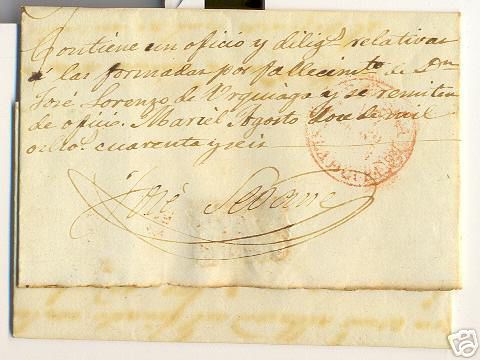 Contiene un oficio y dilig.s relativas
á las formadas por fallecim.to de Dn
José Lorenzo de Urquiaga y se remiten
de oficio. Mariel Agosto dos de mil
ocho.s cuarenta y seis
José Seoane